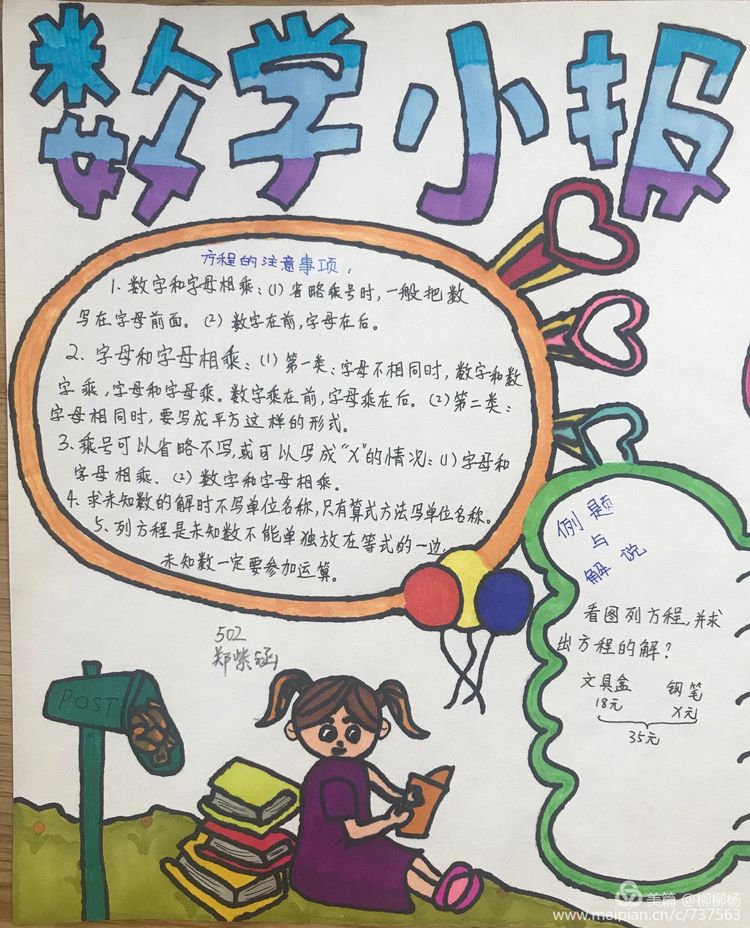 数学小报
方程的注意事项：
1. 数字和字母相乘：(1) 省略乘号时，一般把数
写在字母前面。(2) 数字在前，字母在后。
2. 字母和字母相乘：(1) 第一类：字母不相同时，数字和数
字乘，字母和字母乘。数字乘在前，字母乘在后。(2) 第二类：
字母相同时，要写成平方这样的形式。
3. 乘号可以省略不写，或可以写成“X”的情况：(1) 字母和
字母相乘、(2) 数字和字母相乘。
4. 求未知数的解时不写单位名称，只有算式方法写单位名称。
5. 列方程是未知数不能单独放在等式的一边，
未知数一定要参加运算。
502
郑紫涵
POST
例题
与
解说
看图列方程，并求
出方程的解？
文具盒 钢笔
18元 X元
35元
美篇 @柳柳杨
www.meipian.cn/c/737563